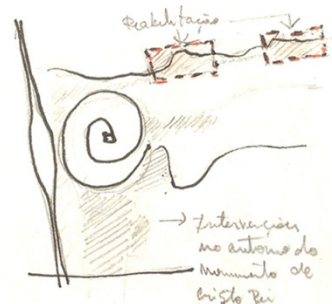 Reabilitação
→ Intervenções
no entorno do
Monumento de
Cristo Rei